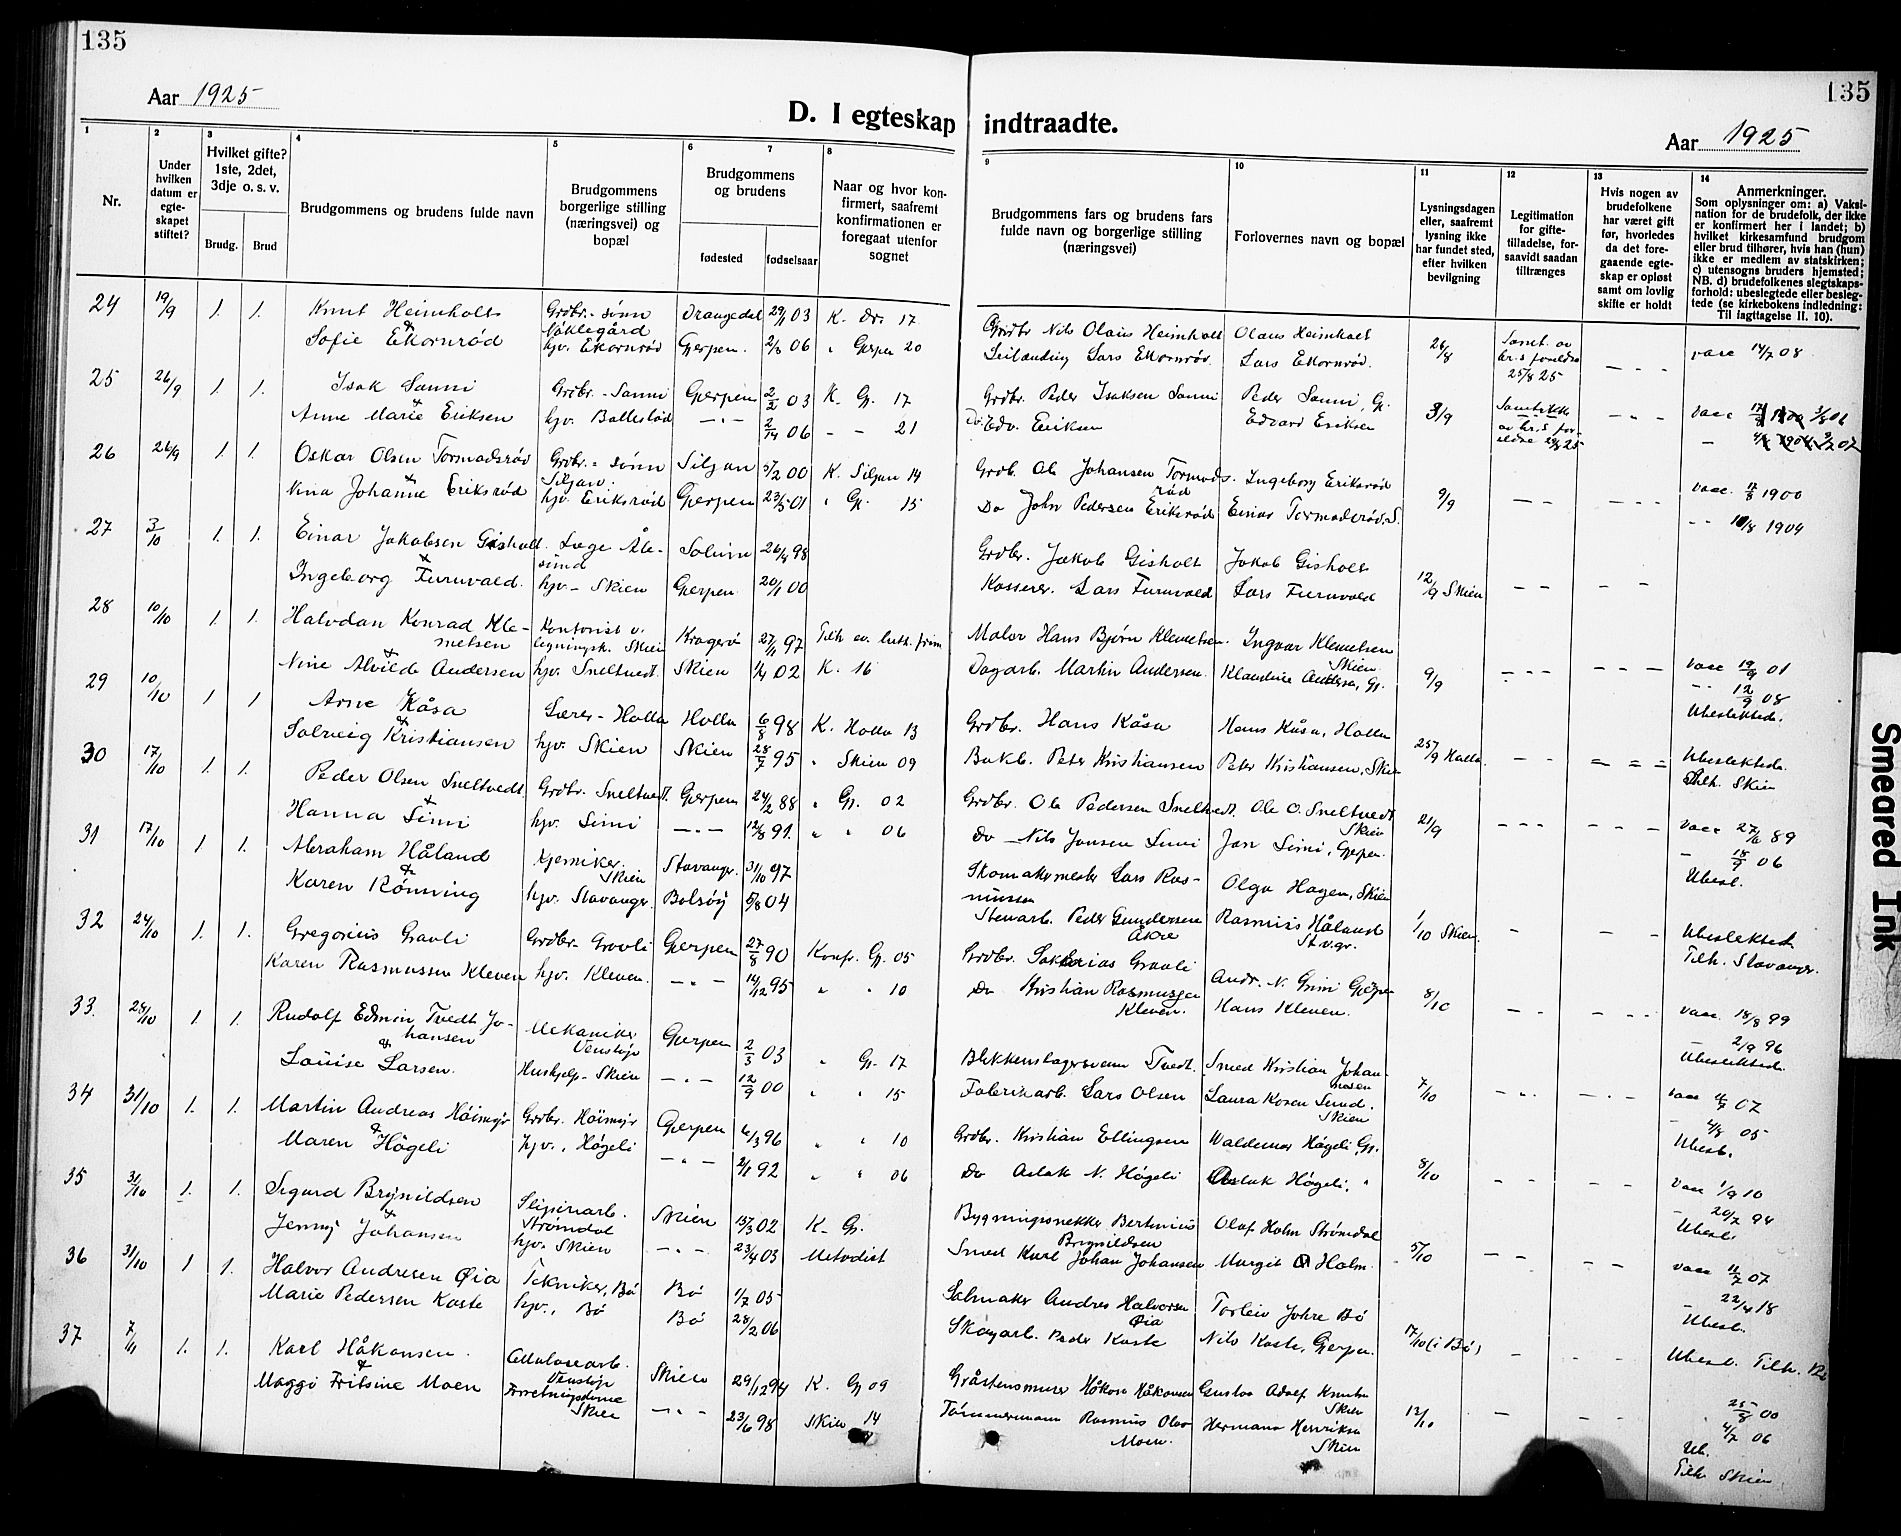 135
135
Aar 1925
D. I egteskap indtraadte.
Aar 1925
1
Nr.
2
Under
hvilken
datum er
egte-
skapet
stiftet?
3
Hvilket gifte?
1ste, 2det,
3dje o. s. v.
Brudg.
Brud
4
Brudgommens og brudens fulde navn
5
Brudgommens
borgerlige stilling
(næringsvei) og
bopæl
6 7
Brudgommens
og brudens
fødested
fødselsaar
8
Naar og hvor kon-
firmert, saafremt
konfirmationen er
foregaat utenfor
sognet
9
Brudgommens fars og brudens fars
fulde navn og borgerlige stilling
(næringsvei)
10
Forlovernes navn og bopæl
11
Lysningsdagen
eller, saafremt
lysning ikke
har fundet sted,
efter hvilken
bevilgning
12
Legitimation
for gifte-
tilladelse, for-
saavidt saadan
tiltrænges
13
Hvis nogen av
brudefolkene
har været gift
før, hvorledes
da det fore-
gaaende egte-
skap er opløst
samt om lovlig
skifte er holdt
14
Anmerkninger.
Som oplysninger om: a) Vaksi-
nation for de brudefolk, der ikke
er konfirmert her i landet; b)
hvilket kirkesamfund brudgom
eller brud tilhører, hvis han (hun)
ikke er medlem av statskirken;
c) utensogns bruders hjemsted;
NB. d) brudefolkenes slegtskaps-
forhold: ubeslegtede eller besleg-
tede (se kirkebokens indledning:
Til iagttagelse II. 10).
24 19/9 1. 1. Knut Heimholt Grdbr.-sønn Drangedal 29/1 03 K. Dr. 17 Grdbr Nils Olaus Heimholt Olaus Heimholt 26/8 Samt. av
& Nøklegård br.s foreldre
Sofie Ekornrød hjv. Ekornrød Gjerpen. 2/3 06 " Gjerpen 20 Leilending Lars Ekornrød. Lars Ekornrød. 25/8 25 - - - vacc 14/7 08
25 26/9 1. 1. Isak Sanni Grdbr.-Sanni Gjerpen 2/2 03 K. Gp. 17 Grdbr. Peder Isaksen Sanni Peder Sanni, Gp. 3/9 Samtykke - - - vacc
&
Anne Marie Eriksen hjv. Ballestad - " - 2/14 06 - - 21 Do. Edv. Eriksen Edvard Eriksen av br.s for-
eldre 25
26 26/9 1. 1. Oskar Olsen Tormodsrød Grdbr.-sønn Siljan 5/2 00 K. Siljan 14 Grdb. Ole Johansen Tormods- Ingeborg Eriksrød 9/9 - - - - vacc. 1900
& Siljan. rød
Nina Johanne Eriksrød hjv. Eriksrød Gjerpen 23/5 01 " Gp. 15 Do John Pedersen Eriksrød Einar Tormodsrød. S. - - 10/8 1904
27 3/10 1. 1. Einar Jakobsen Gisholt Læge Åle- Solum 26/4 98 Grdbr. Jakob Gisholt Jakob Gisholt
& sund
Ingeborg Furuvald. hjv.- Skien Gjerpen. 20/1 00 Kasserer. Lars Furuvald Lars Furuvald 12/9 Skien - - - -
28 10/10 1. 1. Halvdan Konrad Kle- Kontorist v. Kragerø 27/11 97 Tilh. ev. luth. frim Maler Hans Bjørn Klemetsen. Ingvar Klemetsen
metsen ligningsk. Skien Skien
&
Nine Alvilde Andersen hjv. Sneltvedt. Skien 1/4 02 K. 16 Dagarb. Martin Andersen. Klaudine Andersen, Gp. 9/9 - - - - - - vacc 19/9 01
- - 12/9 08
Ubeslektede.
29 10/10 1 1 Arne Kåsa Lærer-Holla Holla 6/8 98 K. Holla 13 Grdbr. Hans Kåsa Hans Kåsa, Holla
&
Solveig Kristiansen hjv. Skien Skien 28/7 95 " Skien 09 Bakb. Peter Kristiansen Peter Kristiansen, Skien 25/9 Holla - - - - - Ubeslektede.
Tilh. Skien
30 17/10 1. 1. Peder Olsen Sneltvedt. Grdbr. Sneltvedt. Gjerpen 24/2 88 " Gp. 02 Grdbr. Ole Pedersen Sneltvedt. Ole O. Sneltvedt 21/9
& Skien
Hanna Limi hjv. Limi - " - 12/8 91. " " 06 Do - Nils Jansen Limi Jan Limi, Gjerpen. - - - - - - vacc 89
- 18/9 06
Ubesl.
31 17/10 1 1. Abraham Håland Kjemiker. Stavanger. 31/10 97 Skomakermester Lars Ras- Olga Hagen, Skien
& Skien mussen
Karen Rønning hjv. Stavanger. Bolsøy 5/8 04 Stenarb. Peder Gundersen Rasmus Håland 1/10 Skien. - - - Ubeslektede
Åkre Stvgr. Tilh. Stavanger.
32 24/10 1. 1. Gregorius Gravli Grdbr. Gravli Gjerpen 27/8 90 Konfr. Gp. 05 Grdbr. Sakarias Gravli Andr. N. Grini Gjerpen
Karen Rasmussen Kleven hjv. Kleven. - " - 14/12 95 " " 10 Do Kristian Rasmussen Hans Kleven. 8/10 - - - - - vacc. 18/8 99
Kleven. - 2/9 96
Ubeslektede.
33. 1. 1. Rudolf Edmin Tvedt Jo- Mekaniker Gjerpen 2/3 03 " Gp. 17 Blikkenslagersvenn Tvedt. Smed Kristian Johan-
hansen Venstøp nesen
&
Louise Larsen. Hushjelp-Skien - " - 12/9 00 " " 15 Fabrikarb. Lars Olsen Laura Skien 7/10 - - - - vacc 07
- 4/8 05
Ubesl.
34 31/10 1. 1. Martin Andreas Höimyr Grdbr. Höimyr Gjerpen 6/3 96 " " 10 Grdbr. Kristian Ellingsen Waldemar Högeli, Gp.
&
Maren Högeli hjv., Högeli - " - 2/1 92 " " 06 Do Aslak N. Högeli Aslak Högeli, " 8/10 - - - - vacc 1/9 10
- 20/7 94
Ubesl.
35 31/10 1. 1. Sigurd Brynildsen Sliperiarb. Skien 13/3 02 K. Gp. Bygningssnekker Bertinius Olaf Holm Strømdal
& Strømdal Brynildsen
Jenny Johansen hjv. Skien - " - 23/4 03 Metodist Smed Karl Johan Johansen Margit Holm. 5/10 - - - - vacc 07
- 22/4 18
Ubesl.
36 31/10 1 1. Halvor Andresen Øia Tekniker, Bø Bø 1/7 05 Salmaker Andres Halvorsen Torleiv Johre Bø
Øia
Marie Pedersen Kaste hjv., Bø Bø 28/2 06 Skogarb. Peder Kaste Nils Kaste, Gjerpen. 17/10 (i Bø) - - - Ubesl. Tilh. Bø
37 7/11 1. 1. Karl Håkonsen. Cellulosearb. Skien 29/12 94 K. Gp 09 Gråstensmurer Håkon Håkonsen Gustav Adolf Knutsen
& Venstøp Skien
Maggi Fritsine Moen Forretningsdame - " - 23/6 98 Skien 14 Tømmermann Rasmus Olav Hermann Henriksen 12/10 - - - 25/8 00
Skien Moen. Skien 4/7 06
Ub.
Tilh. Skien
Smeared Ink